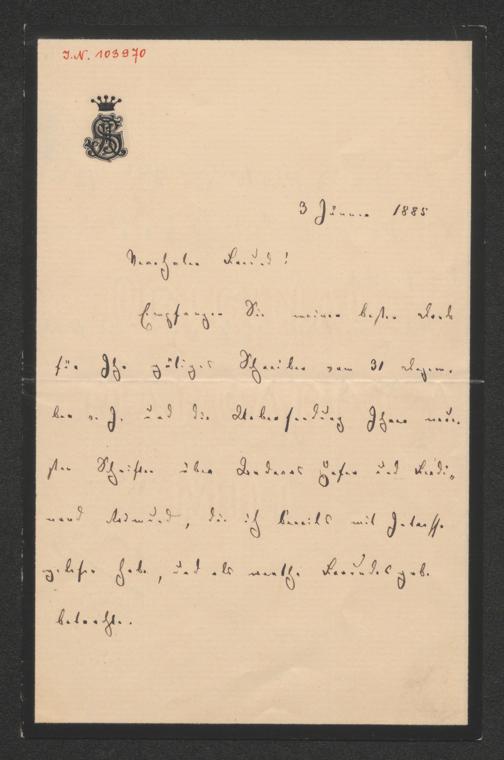 I.N. 103970
3 Jänner 1885
Verehrter Freund!
Empfangen Sie meinen besten Dank
für Ihr gütiges Schreiben vom 31 Dezem-
ber v. J. und die Uebersendung Ihrer neue-
sten Schriften über und Ferdi-
nand Raimund, die ich bereits mit Interesse
gelesen habe, und als werthe Freundesgabe
betrachte.